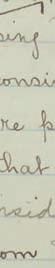 sing
consi
re p
that
nsid
om